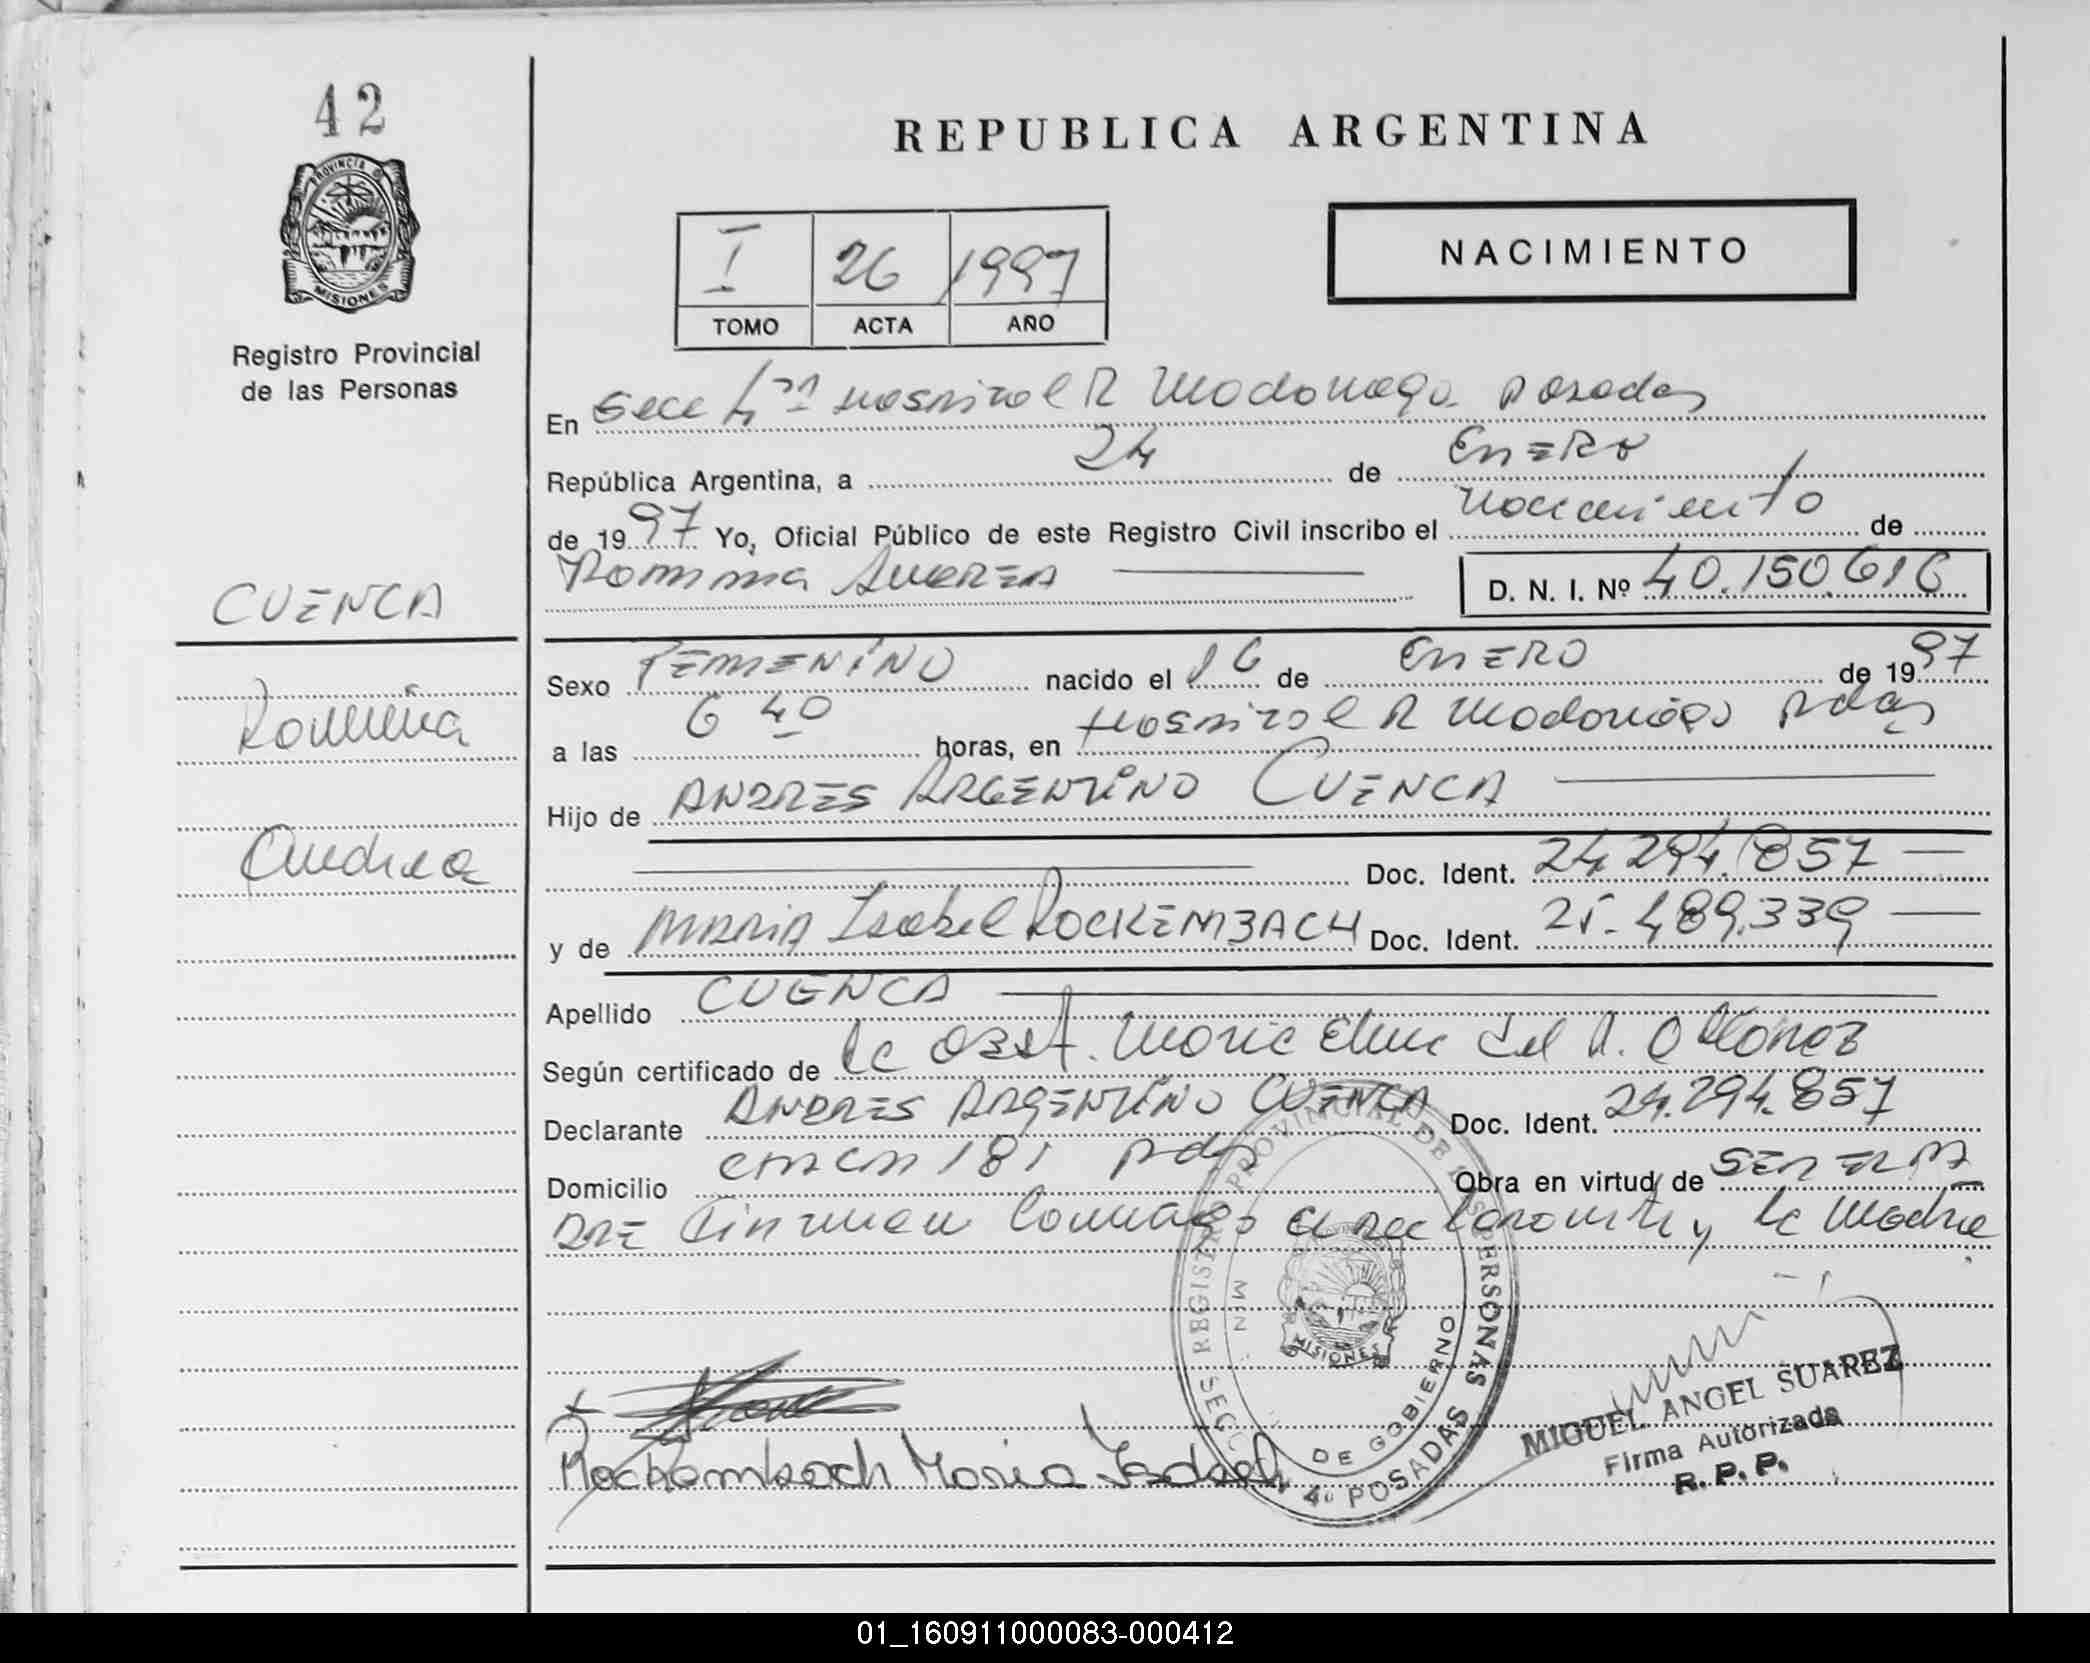 42
PROVINCIA DE
MISIONES
Registro Provincial
de las Personas
CUENCA
Romina
Andrea
REPUBLICA ARGENTINA
NACIMIENTO
I 26 1997
TOMO ACTA AÑO
En Secc 4ta Hospital R Madariaga Posadas
República Argentina, a 24 de ENERO
de 1997 Yo, Oficial Público de este Registro Civil inscribo el nacimiento de
Romina ANDREA
D. N. I. Nº 40.150.616
Sexo FEMENINO nacido el 16 de ENERO de 1997
a las 6 40 horas, en Hospital R Madariaga Pdas
Hijo de ANDRES ARGENTINO CUENCA
Doc. Ident. 24.294.857
y de MARIA Isabel ROCKEMBACH Doc. Ident. 25.489.339
Apellido CUENCA
Según certificado de la OBST. Maria del
Declarante ANDRES ARGENTINO CUENCA Doc. Ident. 24.294.857
Domicilio 181 Pdas Obra en virtud de SER EL PA
DRE Firman conmigo el declarante y la Madre
REGISTRO PROVINCIAL DE LAS PERSONAS
MIN DE GOBIERNO
MISIONES
SECC 4a POSADAS
Rockembach Maria Isabel
MIGUEL ANGEL SUAREZ
Firma Autorizada
R. P. P.
01_160911000083-000412